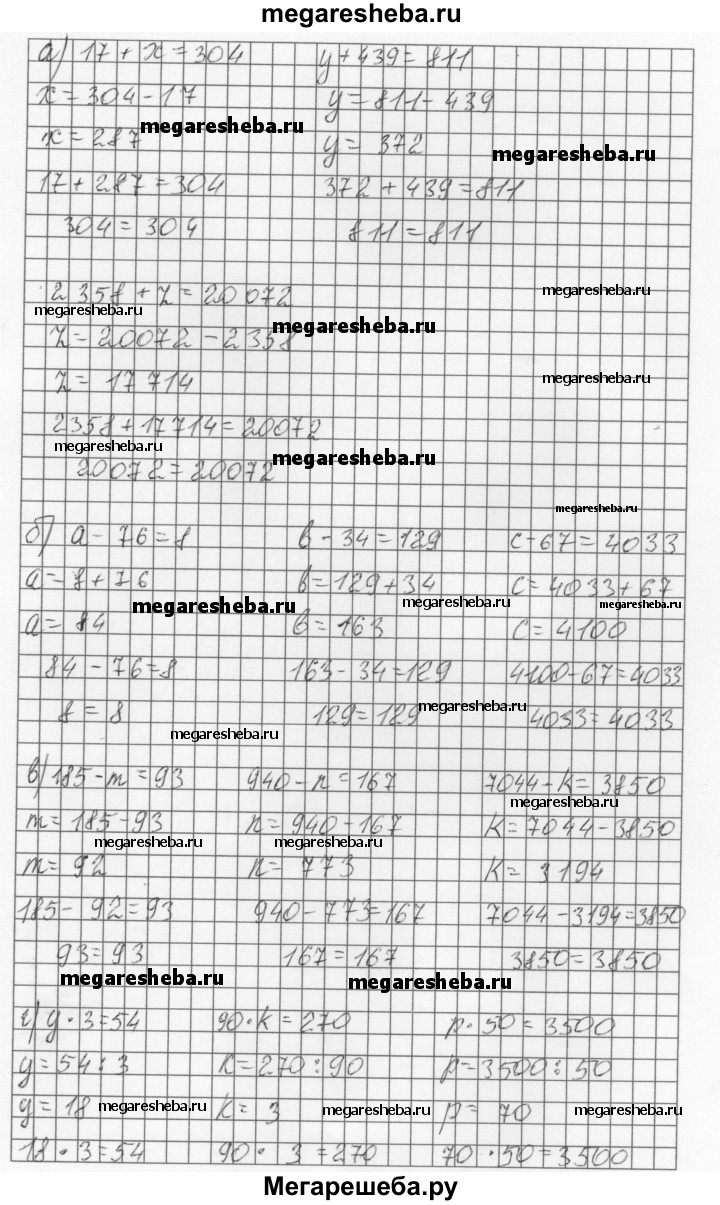 megaresheba.ru
а) 17 + x = 304 y + 439 = 811
x = 304 - 17 y = 811 - 439
megaresheba.ru
x = 287 y = 372
megaresheba.ru
17 + 287 = 304 372 + 439 = 811
304 = 304 811 = 811
2358 + z = 20072
megaresheba.ru megaresheba.ru
megaresheba.ru
z = 20072 - 2358
z = 17714
megaresheba.ru
2358 + 17714 = 20072
megaresheba.ru megaresheba.ru
20072 = 20072
megaresheba.ru
б) a - 76 = 8 b - 34 = 129 c - 67 = 4033
a = 8 + 76 b = 129 + 34 c = 4033 + 67
megaresheba.ru megaresheba.ru megaresheba.ru
a = 84 b = 163 c = 4100
84 - 76 = 8 163 - 34 = 129 4100 - 67 = 4033
8 = 8 129 = 129 4033 = 4033
megaresheba.ru megaresheba.ru
в) 185 - m = 93 940 - n = 167 7044 - k = 3850
megaresheba.ru
m = 185 - 93 n = 940 - 167 k = 7044 - 3850
megaresheba.ru megaresheba.ru
m = 92 n = 773 k = 3194
185 - 92 = 93 940 - 773 = 167 7044 - 3194 = 3850
93 = 93 167 = 167 3850 = 3850
megaresheba.ru megaresheba.ru
г) y · 3 = 54 90 · k = 270 p · 50 = 3500
y = 54 : 3 k = 270 : 90 p = 3500 : 50
y = 18 megaresheba.ru k = 3 megaresheba.ru p = 70 megaresheba.ru
18 · 3 = 54 90 · 3 = 270 70 · 50 = 3500
Мегарешеба.ру